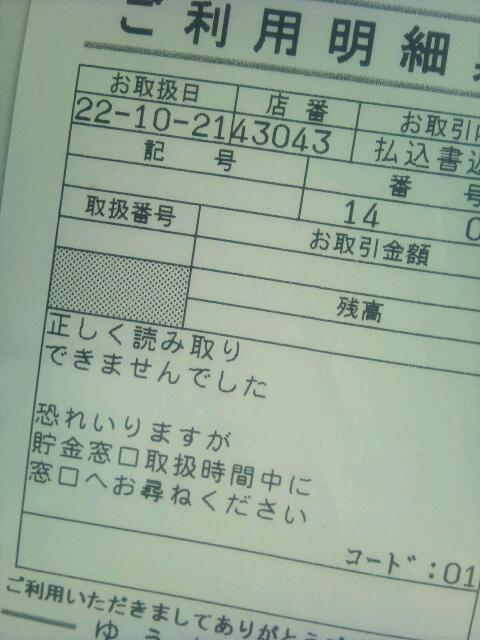 ご利用明細
お取扱日 店番 お取引内
22-10-21 43043 払込書込
記号 番号
14 0
取扱番号 お取引金額
残高
正しく読み取り
できませんでした
恐れいりますが
貯金窓口取扱時間中に
窓口へお尋ねください
コード:01
ご利用いただきましてありがとう
ゆう